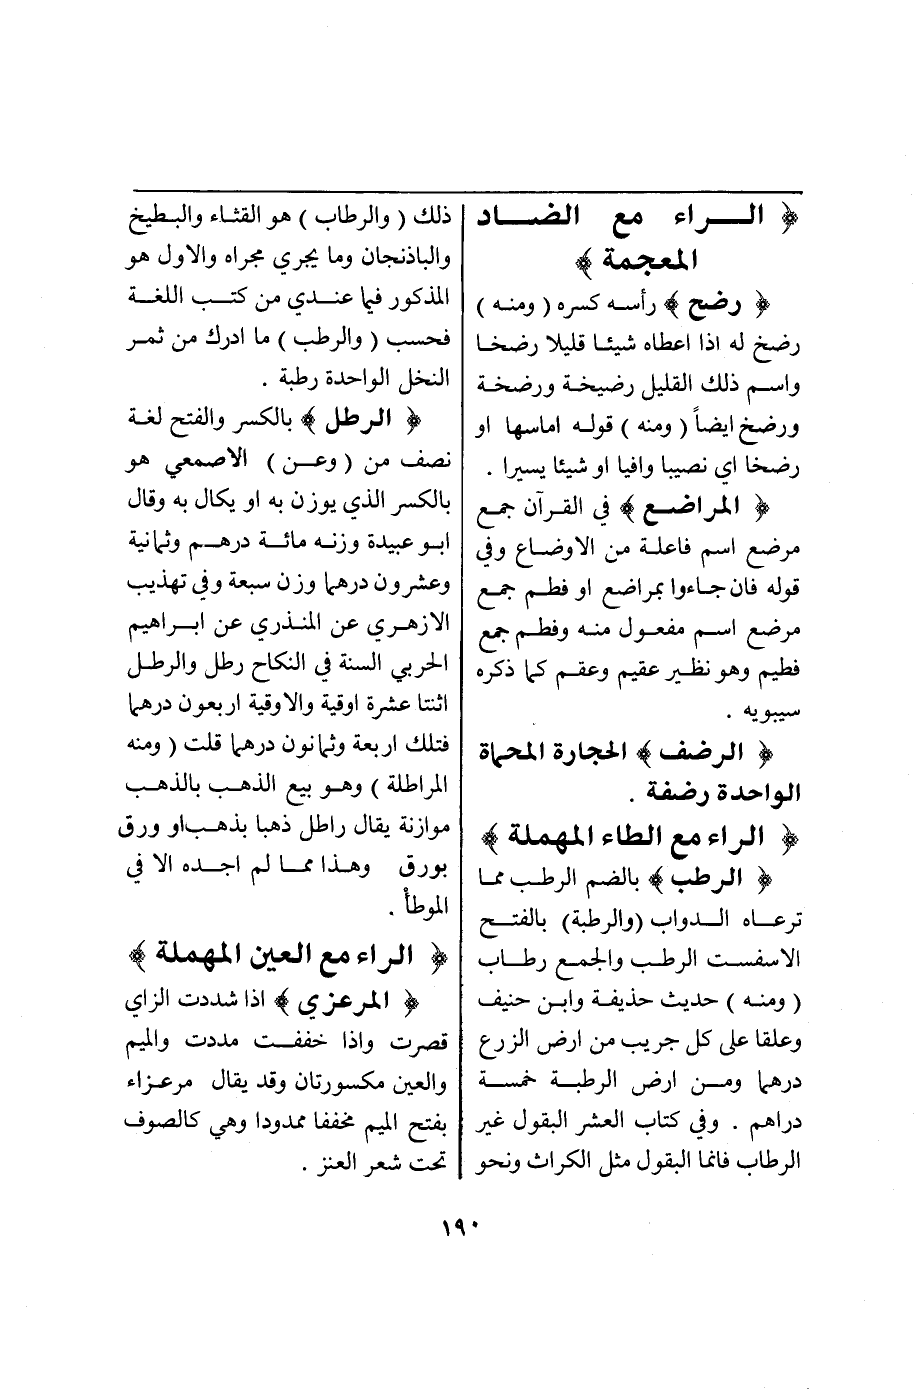 ﴿ الـــراء مع الضـــاد
المعجمة ﴾
﴿ رضح ﴾ رأسـه كسره ( ومنـه )
رضخ له اذا اعطاه شيئـا قليلا رضخـا
واسـم ذلك القليل رضيخـة ورضخـة
ورضخ ايضاً ( ومنه ) قولـه اماسهـا او
رضخا اي نصيبا وافيا او شيئا يسيرا .
﴿ المراضـع ﴾ في القرآن جمـع
مرضع اسـم فاعلـة من الاوضـاع وفي
قوله فان جـاءوا بمراضع او فطـم جمـع
مرضع اسـم مفعـول منـه وفطـم جمع
فطيم وهو نظـير عقيم وعقـم كما ذكره
سيبويه .
﴿ الرضف ﴾ الحجارة المحماة
الواحدة رضفة .
﴿ الراء مع الطاء المهملة ﴾
﴿ الرطب ﴾ بالضم الرطـب مما
ترعـاه الـدواب (والرطبة) بالفتـح
الاسفسـت الرطـب والجمـع رطـاب
( ومنـه ) حديث حذيفـة وابـن حنيف
وعلقا على كل جريب من ارض الزرع
درهما ومـن ارض الرطبـة خمسـة
دراهم . وفي كتاب العشر البقول غير
الرطاب فانما البقول مثل الكراث ونحو
ذلك ( والرطاب ) هو القثـاء والبـطيخ
والباذنجان وما يجري مجراه والاول هو
المذكور فيما عنـدي من كتـب اللغـة
فحسب ( والرطب ) ما ادرك من ثمـر
النخل الواحدة رطبة .
﴿ الرطل ﴾ بالكسر والفتح لغـة
نصف من ( وعـن ) الاصمعي هو
بالكسر الذي يوزن به او يكال به وقال
ابـو عبيدة وزنـه مائـة درهـم وثمانية
وعشرون درهما وزن سبعة وفي تهذيب
الازهـري عن المنـذري عن ابـراهيم
الحربي السنة في النكاح رطل والرطـل
اثنتا عشرة اوقية والاوقية اربعون درهما
فتلك اربعة وثمانون درهما قلت ( ومنه
المراطلة ) وهـو بيع الذهـب بالذهـب
موازنة يقال راطل ذهبا بذهب او ورق
بورق وهـذا ممـا لم اجـده الا في
الموطأ .
﴿ الراء مع العين المهملة ﴾
﴿ المرعزي ﴾ اذا شددت الزاي
قصرت واذا خففـت مددت والميم
والعين مكسورتان وقد يقال مرعـزاء
بفتح الميم مخففا ممدودا وهي كالصوف
تحت شعر العنز .
١٩٠